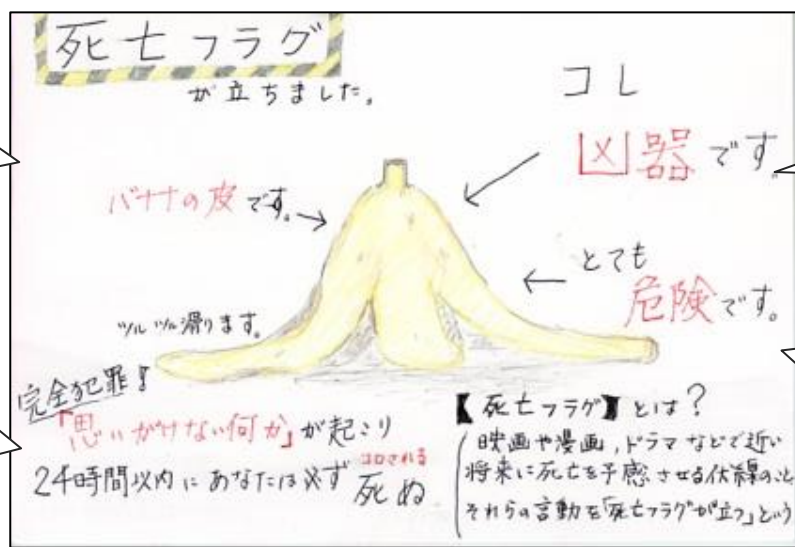 死亡フラグ
が立ちました。
コレ
凶器です。
バナナの皮です。
とても
危険です。
ツルツル滑ります。
完全犯罪!
「思いがけない何か」が起こり
24時間以内にあなたは必ず死ぬ
コロされる
【死亡フラグ】とは?
映画や漫画,ドラマなどで近い
将来に死亡を予感させる伏線のこと
それらの言動を「死亡フラグが立つ」という